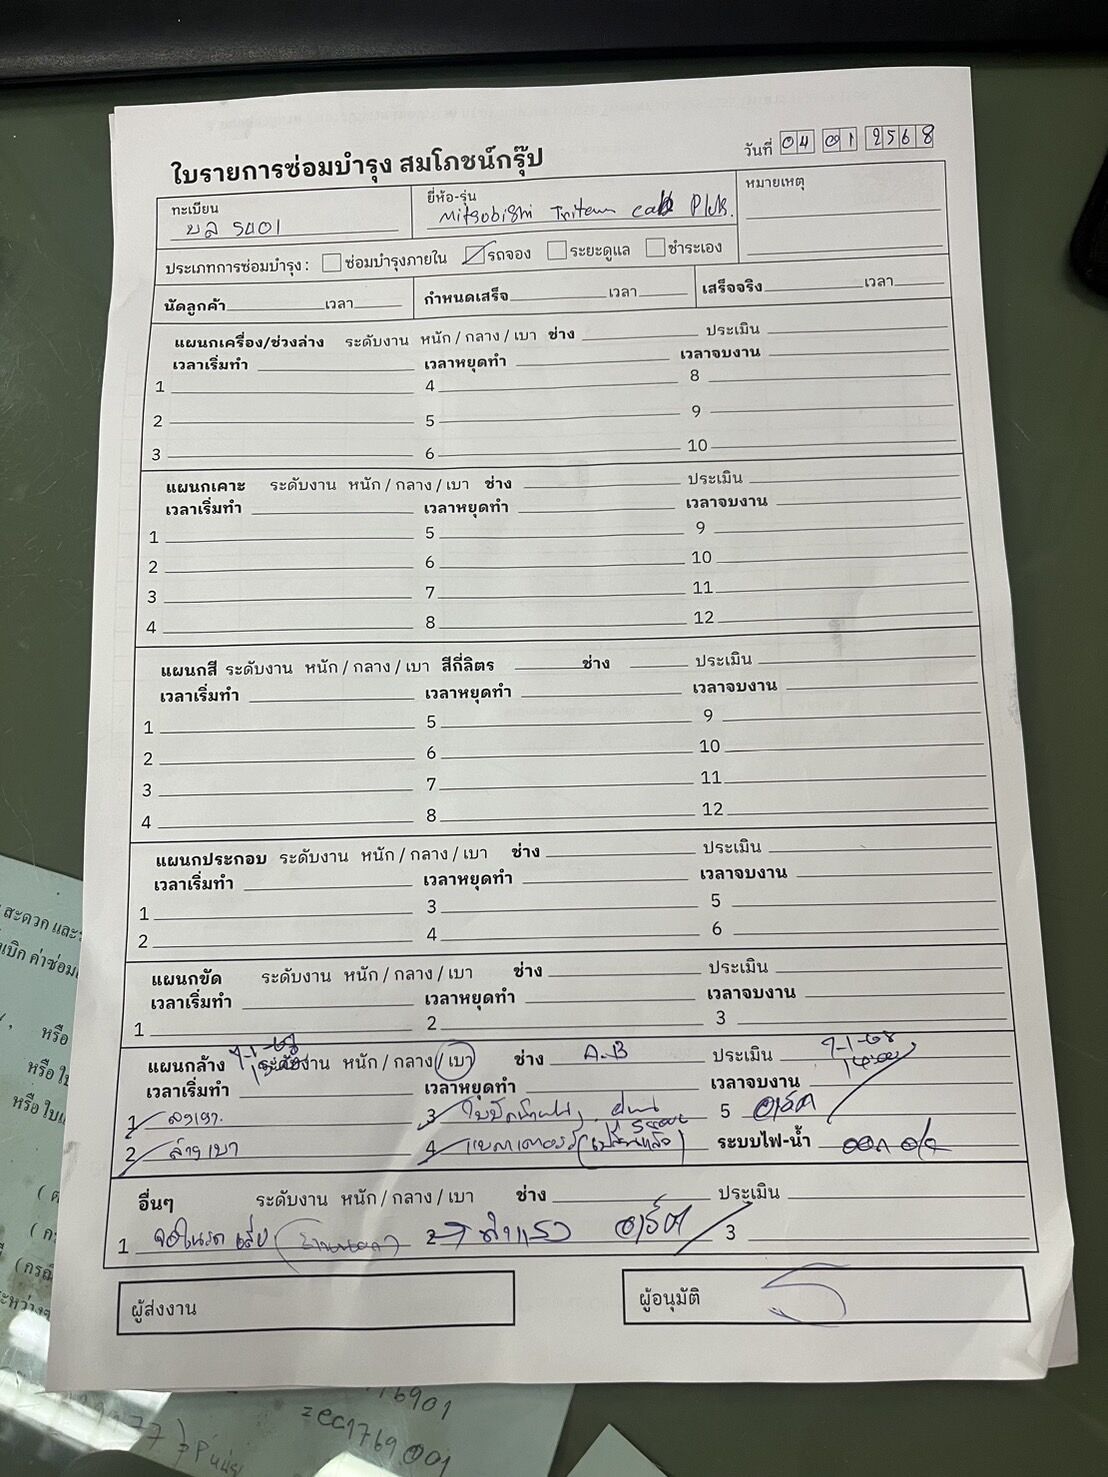 วันที่ 04 01 2568
ใบรายการซ่อมบำรุง สมโภชน์กรุ๊ป
ทะเบียน ยี่ห้อ-รุ่น หมายเหตุ
บล 5401 Mitsobishi Triton cab Plus.
ประเภทการซ่อมบำรุง : ซ่อมบำรุงภายใน รถจอง ระยะดูแล ชำระเอง
นัดลูกค้า เวลา กำหนดเสร็จ เวลา เสร็จจริง เวลา
แผนกเครื่อง/ช่วงล่าง ระดับงาน หนัก / กลาง / เบา ช่าง ประเมิน
เวลาเริ่มทำ เวลาหยุดทำ เวลาจบงาน
1 4 8
2 5 9
3 6 10
แผนกเคาะ ระดับงาน หนัก / กลาง / เบา ช่าง ประเมิน
เวลาเริ่มทำ เวลาหยุดทำ เวลาจบงาน
1 5 9
2 6 10
3 7 11
4 8 12
แผนกสี ระดับงาน หนัก / กลาง / เบา สีกี่ลิตร ช่าง ประเมิน
เวลาเริ่มทำ เวลาหยุดทำ เวลาจบงาน
1 5 9
2 6 10
3 7 11
4 8 12
แผนกประกอบ ระดับงาน หนัก / กลาง / เบา ช่าง ประเมิน
เวลาเริ่มทำ เวลาหยุดทำ เวลาจบงาน
1 3 5
2 4 6
แผนกขัด ระดับงาน หนัก / กลาง / เบา ช่าง ประเมิน
เวลาเริ่มทำ เวลาหยุดทำ เวลาจบงาน
1 2 3
แผนกล้าง 7-1-68 ระดับงาน หนัก / กลาง / เบา ช่าง A-B ประเมิน 7-1-68
เวลาเริ่มทำ เวลาหยุดทำ เวลาจบงาน
1 3 5
2 ล้างเบา 4 แบตเตอรรี่ ระบบไฟ-น้ำ
อื่นๆ ระดับงาน หนัก / กลาง / เบา ช่าง ประเมิน
1 2 3
ผู้ส่งงาน ผู้อนุมัติ
สะดวก และ
เบิก ค่าซ่อม
หรือ
หรือ ใบ
หรือ ใบแ
( ก
( กรณี
ะหว่าง
=ec1769001